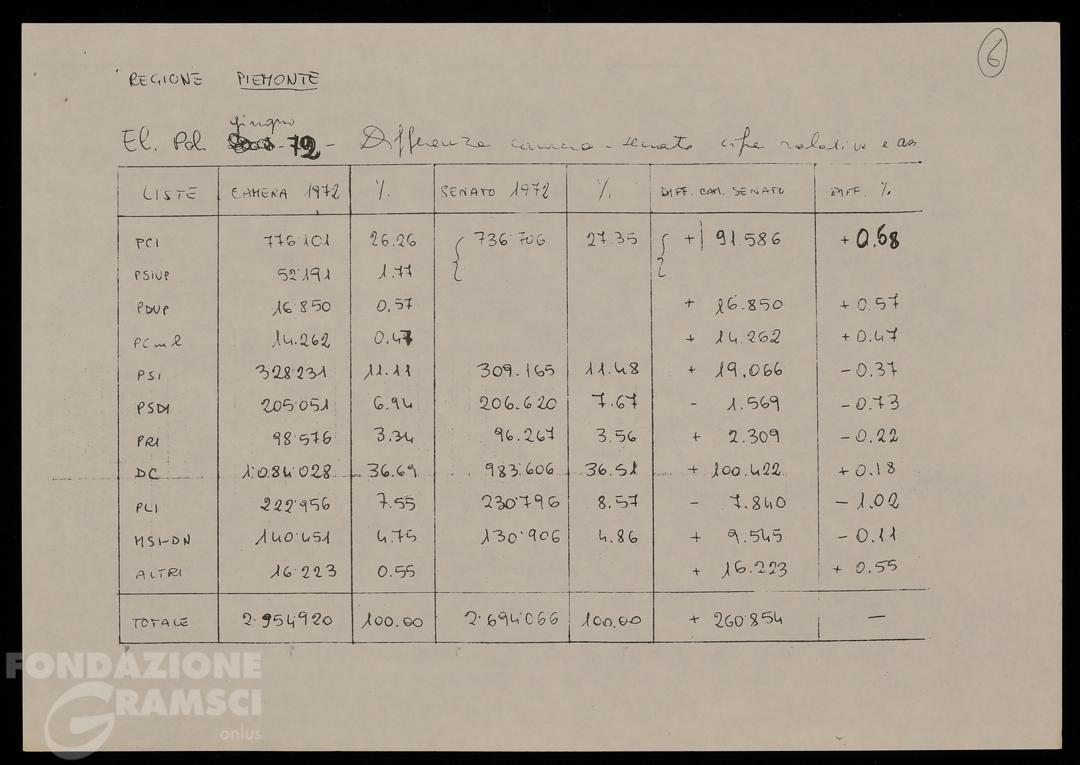 6
REGIONE PIEMONTE
giugno
El. Pol. 72 - Differenza camera - senato cifre relative e as
LISTE CAMERA 1972 % SENATO 1972 % DIFF. CAM. SENATO DIFF. %
PCI 776.101 26.26 { 736.706 27.35 { + 91.586 + 0.68
PSIUP 52.191 1.77
PDUP 16.850 0.57 + 16.850 + 0.57
PCml 14.262 0.47 + 14.262 + 0.47
PSI 328.231 11.11 309.165 11.48 + 19.066 - 0.37
PSDI 205.051 6.94 206.620 7.67 - 1.569 - 0.73
PRI 98.576 3.34 96.267 3.56 + 2.309 - 0.22
DC 1.084.028 36.69 983.606 36.51 + 100.422 + 0.18
PLI 222.956 7.55 230.796 8.57 - 7.840 - 1.02
MSI-DN 140.451 4.75 130.906 4.86 + 9.545 - 0.11
ALTRI 16.223 0.55 + 16.223 + 0.55
TOTALE 2.954920 100.00 2.694066 100.00 + 260.854 —
FONDAZIONE
GRAMSCI
onlus